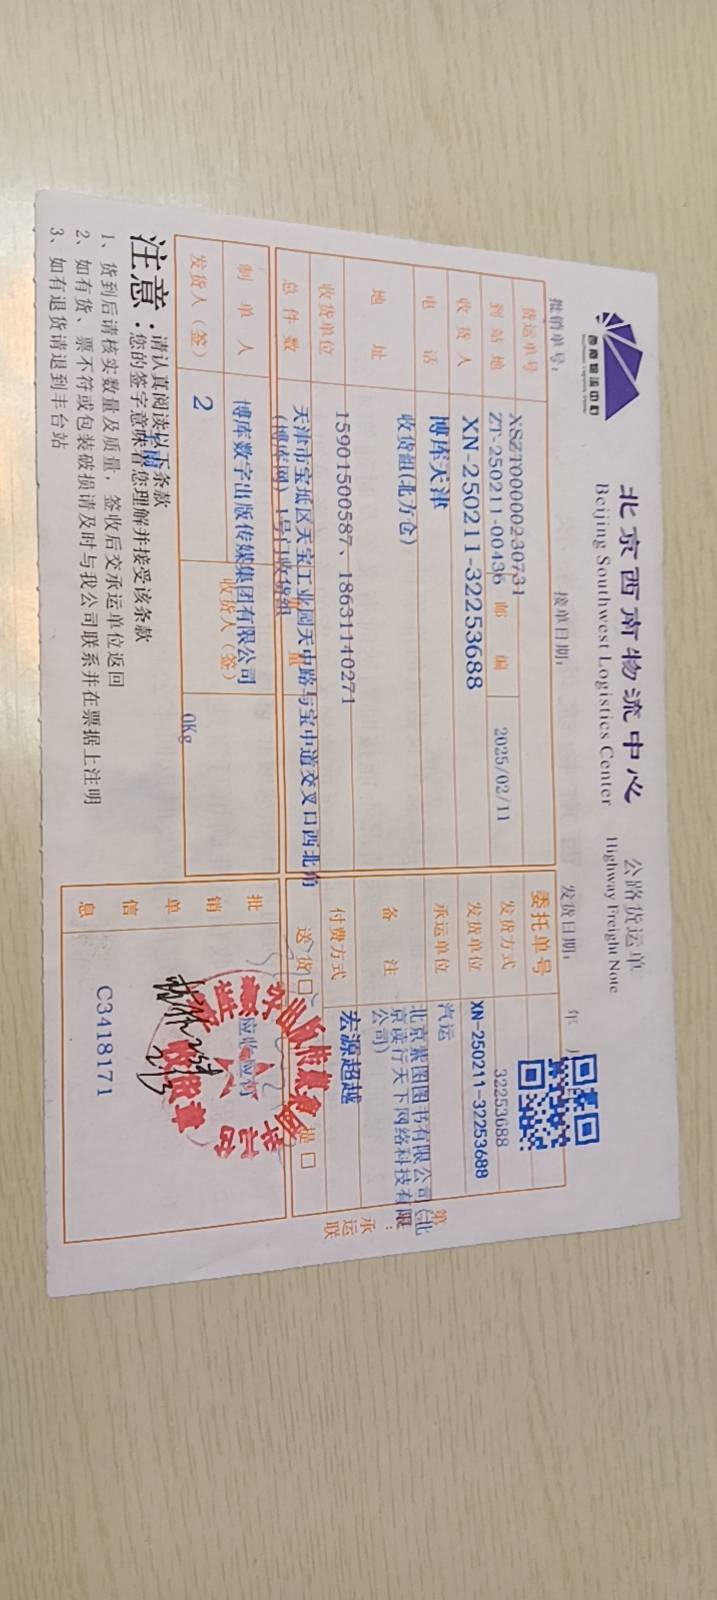 西南物流中心
北京西南物流中心 公路货运单
Beijing Southwest Logistics Center Highway Freight Note
批销单号: 接单日期: 发货日期: 年 月
货运单号 XSZT0000230731 委托单号
到站地 ZT-250211-00436 邮编 2025/02/11 发货方式 32253688
收货人 XN-250211-32253688 发货单位 XN-250211-32253688
电话 博库天津 承运单位 汽运
地址 收货组(北方仓) 备注 北京紫图图书有限公司(北
京读行天下网络科技有限
公司)
收货单位 15901500587、18631140271 付费方式 宏源超越
总件数 天津市宝坻区天宝工业园天中路与宝中道交叉口西北角 送货□ 提□
(博库网)1号门收货组 量
制单人 博库数字出版传媒集团有限公司 收货人(签)
发货人(签) 2 0Kg
批销单信息 应收应付
C3418171
第 : 承运联
注意: 请认真阅读以下条款
您的签字意味着您理解并接受该条款
1、货到后请核实数量及质量，签收后交承运单位返回
2、如有货、票不符或包装破损请及时与我公司联系并在票据上注明
3、如有退货请退到丰台站